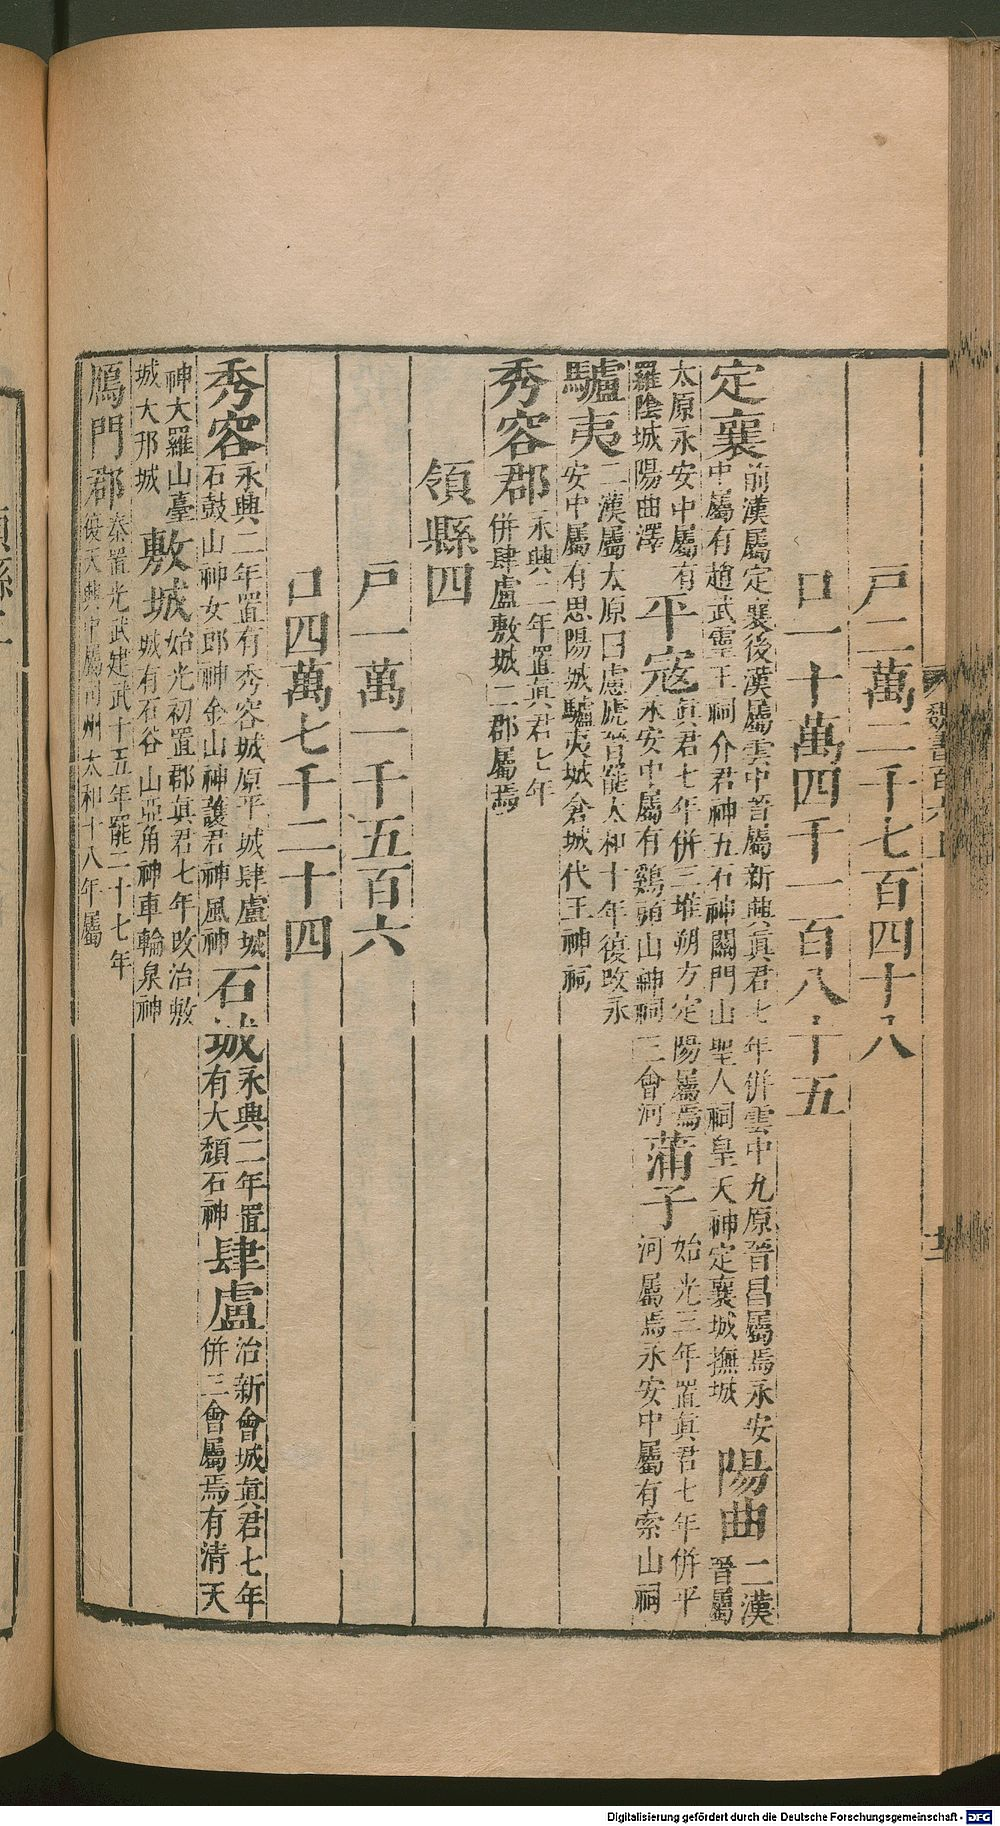 戸二萬二千七百四十八
口一十萬四千一百八十五
定襄前漢屬定襄後漢屬雲中晉屬新興真君七年併雲中九原晉昌屬焉永安中屬有趙武靈王祠介君神五石神關門山聖人祠皇天神定襄城撫城陽曲二漢晉屬
太原永安中屬有羅陰城陽曲澤平寇真君七年併三堆朔方定陽屬焉永安中屬有雞頭山神祠三會河蒲子始光三年置真君七年併平河屬焉永安中屬有索山祠
驢夷二漢屬太原曰慮虒晉罷太和十年復改永安中屬有思陽城驢夷城倉城代王神祠
秀容郡永興二年置真君七年併肆盧敷城二郡屬焉
領縣四
戸一萬一千五百六
口四萬七千二十四
秀容永興二年置有秀容城原平城肆盧城石鼓山神女郎神金山神護君神風神石城永興二年置有大頹石神肆盧治新會城真君七年併三會屬焉有清天
神大羅山臺城大邗城敷城始光初置郡真君七年改治敷城有石谷山亞角神車輪泉神
鴈門郡秦置光武建武十五年罷二十七年復天興中屬司州太和十八年屬
魏書百六上
領縣二
Digitalisierung gefördert durch die Deutsche Forschungsgemeinschaft - DFG